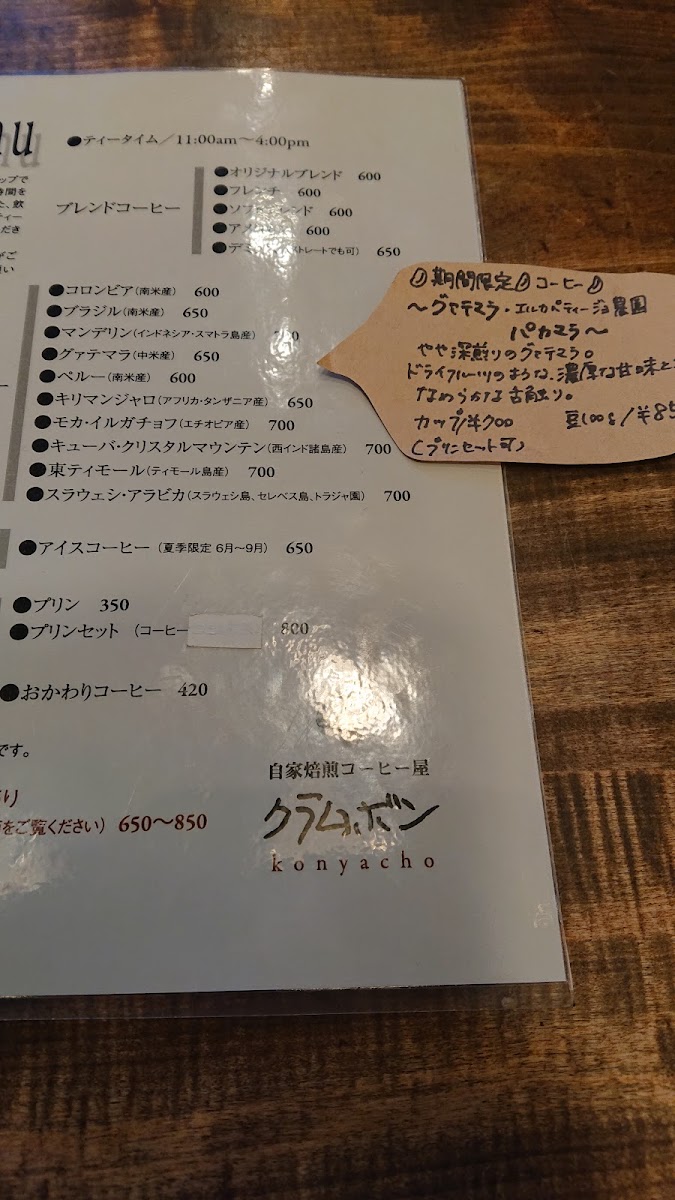 nu
●ティータイム／11:00am〜4:00pm
ップで
時間を
た、飲
ティー
ださ
がご
思い
ブレンドコーヒー
●オリジナルブレンド 600
●フレンチ 600
●ソフトブレンド 600
●アメリカン 600
●デミ ストレートでも可） 650
●コロンビア（南米産） 600
●ブラジル（南米産） 650
●マンデリン（インドネシア・スマトラ島産）
●グァテマラ（中米産） 650
●ペルー（南米産） 600
●キリマンジャロ（アフリカ・タンザニア産） 650
●モカ・イルガチョフ（エチオピア産） 700
●キューバ・クリスタルマウンテン（西インド諸島産） 700
●東ティモール（ティモール島産） 700
●スラウェシ・アラビカ（スラウェシ島、セレベス島、トラジャ園） 700
●アイスコーヒー（夏季限定 6月〜9月） 650
●プリン 350
●プリンセット （コーヒー 800
●おかわりコーヒー 420
です。
り
をご覧ください） 650〜850
自家焙煎コーヒー屋
クラムボン
konyacho
期間限定 コーヒー
〜グァテマラ・エルカパティージョ農園
パカマラ〜
やや深煎りのグァテマラ。
ドライフルーツのような、濃厚な甘味と
なめらかな舌触り。
カップ/￥700 豆100g/￥85
（プリンセット可）